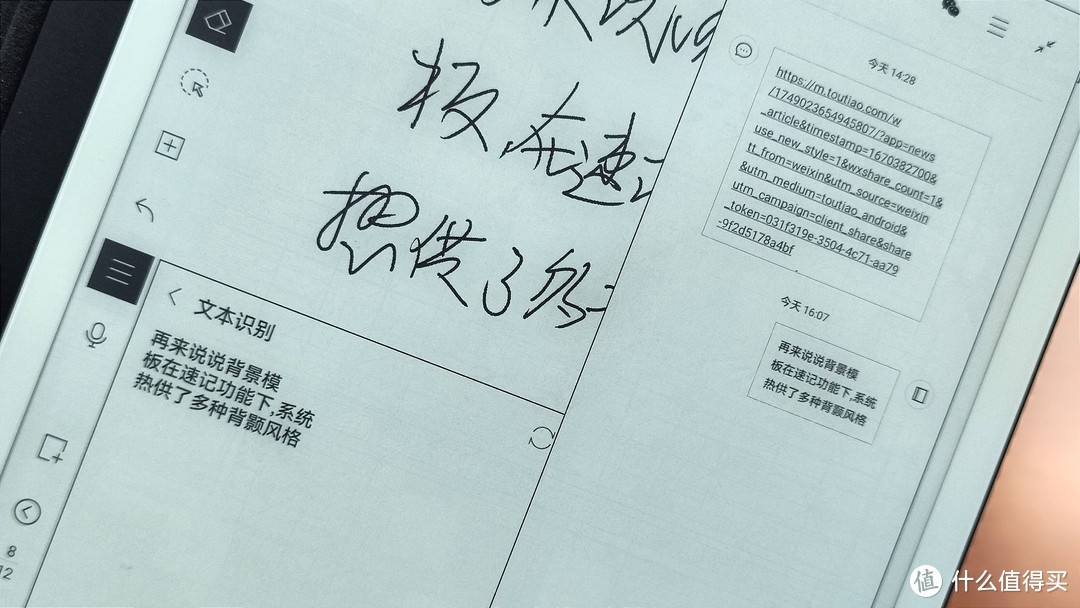 板,在速记
热供了多
文本识别
再来说说背景模
板在速记功能下,系统
热供了多种背颢风格
8
12
今天 14:28
https://m.toutiao.com/w
/1749023654945807/?app=news
_article&timestamp=1670382700&
use_new_style=1&wxshare_count=1&
tt_from=weixin&utm_source=weixin
&utm_medium=toutiao_android&
utm_campaign=client_share&share
_token=031f319e-3504-4c71-aa79
-9f2d5178a4bf
今天 16:07
再来说说背景模
板在速记功能下,系统
热供了多种背颢风格
值 什么值得买